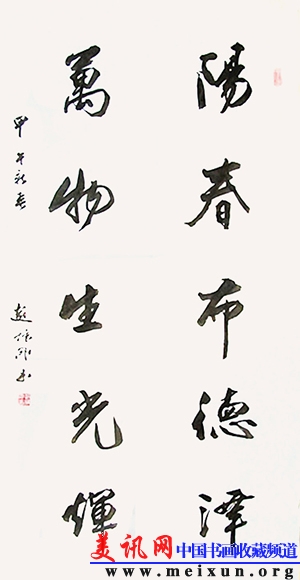 陽春布德澤
萬物生光輝
甲午新春
美讯网
中国书画收藏频道
www.meixun.org